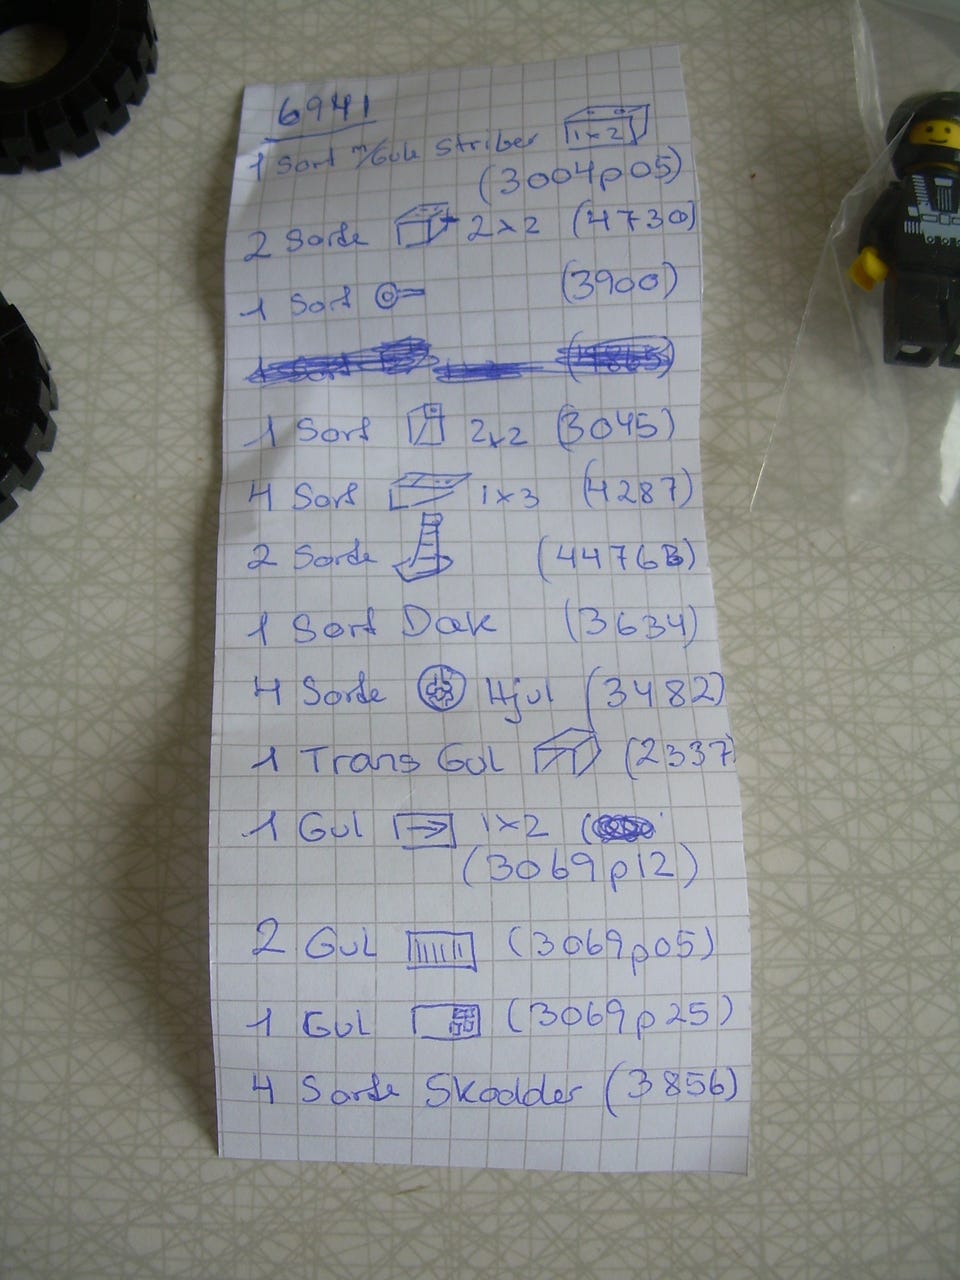 6941
1 Sort m/Gule Striber 1x2
(3004p05)
2 Sorte 2x2 (4730)
1 Sort (3900)
1 Sort 2x2 (3045)
4 Sort 1x3 (4287)
2 Sorte (4476B)
1 Sort Dæk (3634)
4 Sorte Hjul (3482)
1 Trans Gul (2337)
1 Gul 1x2
(3069p12)
2 Gul (3069p05)
1 Gul (3069p25)
4 Sorte Skodder (3856)